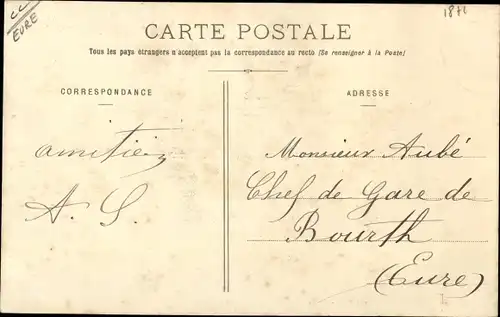 CC
EURE
1871
CARTE POSTALE
Tous les pays étrangers n'acceptent pas la correspondance au recto (Se renseigner à la Poste)
CORRESPONDANCE
amitiés
A. S.
ADRESSE
Monsieur Aubé
Chef de Gare de
Bourth
(Eure)